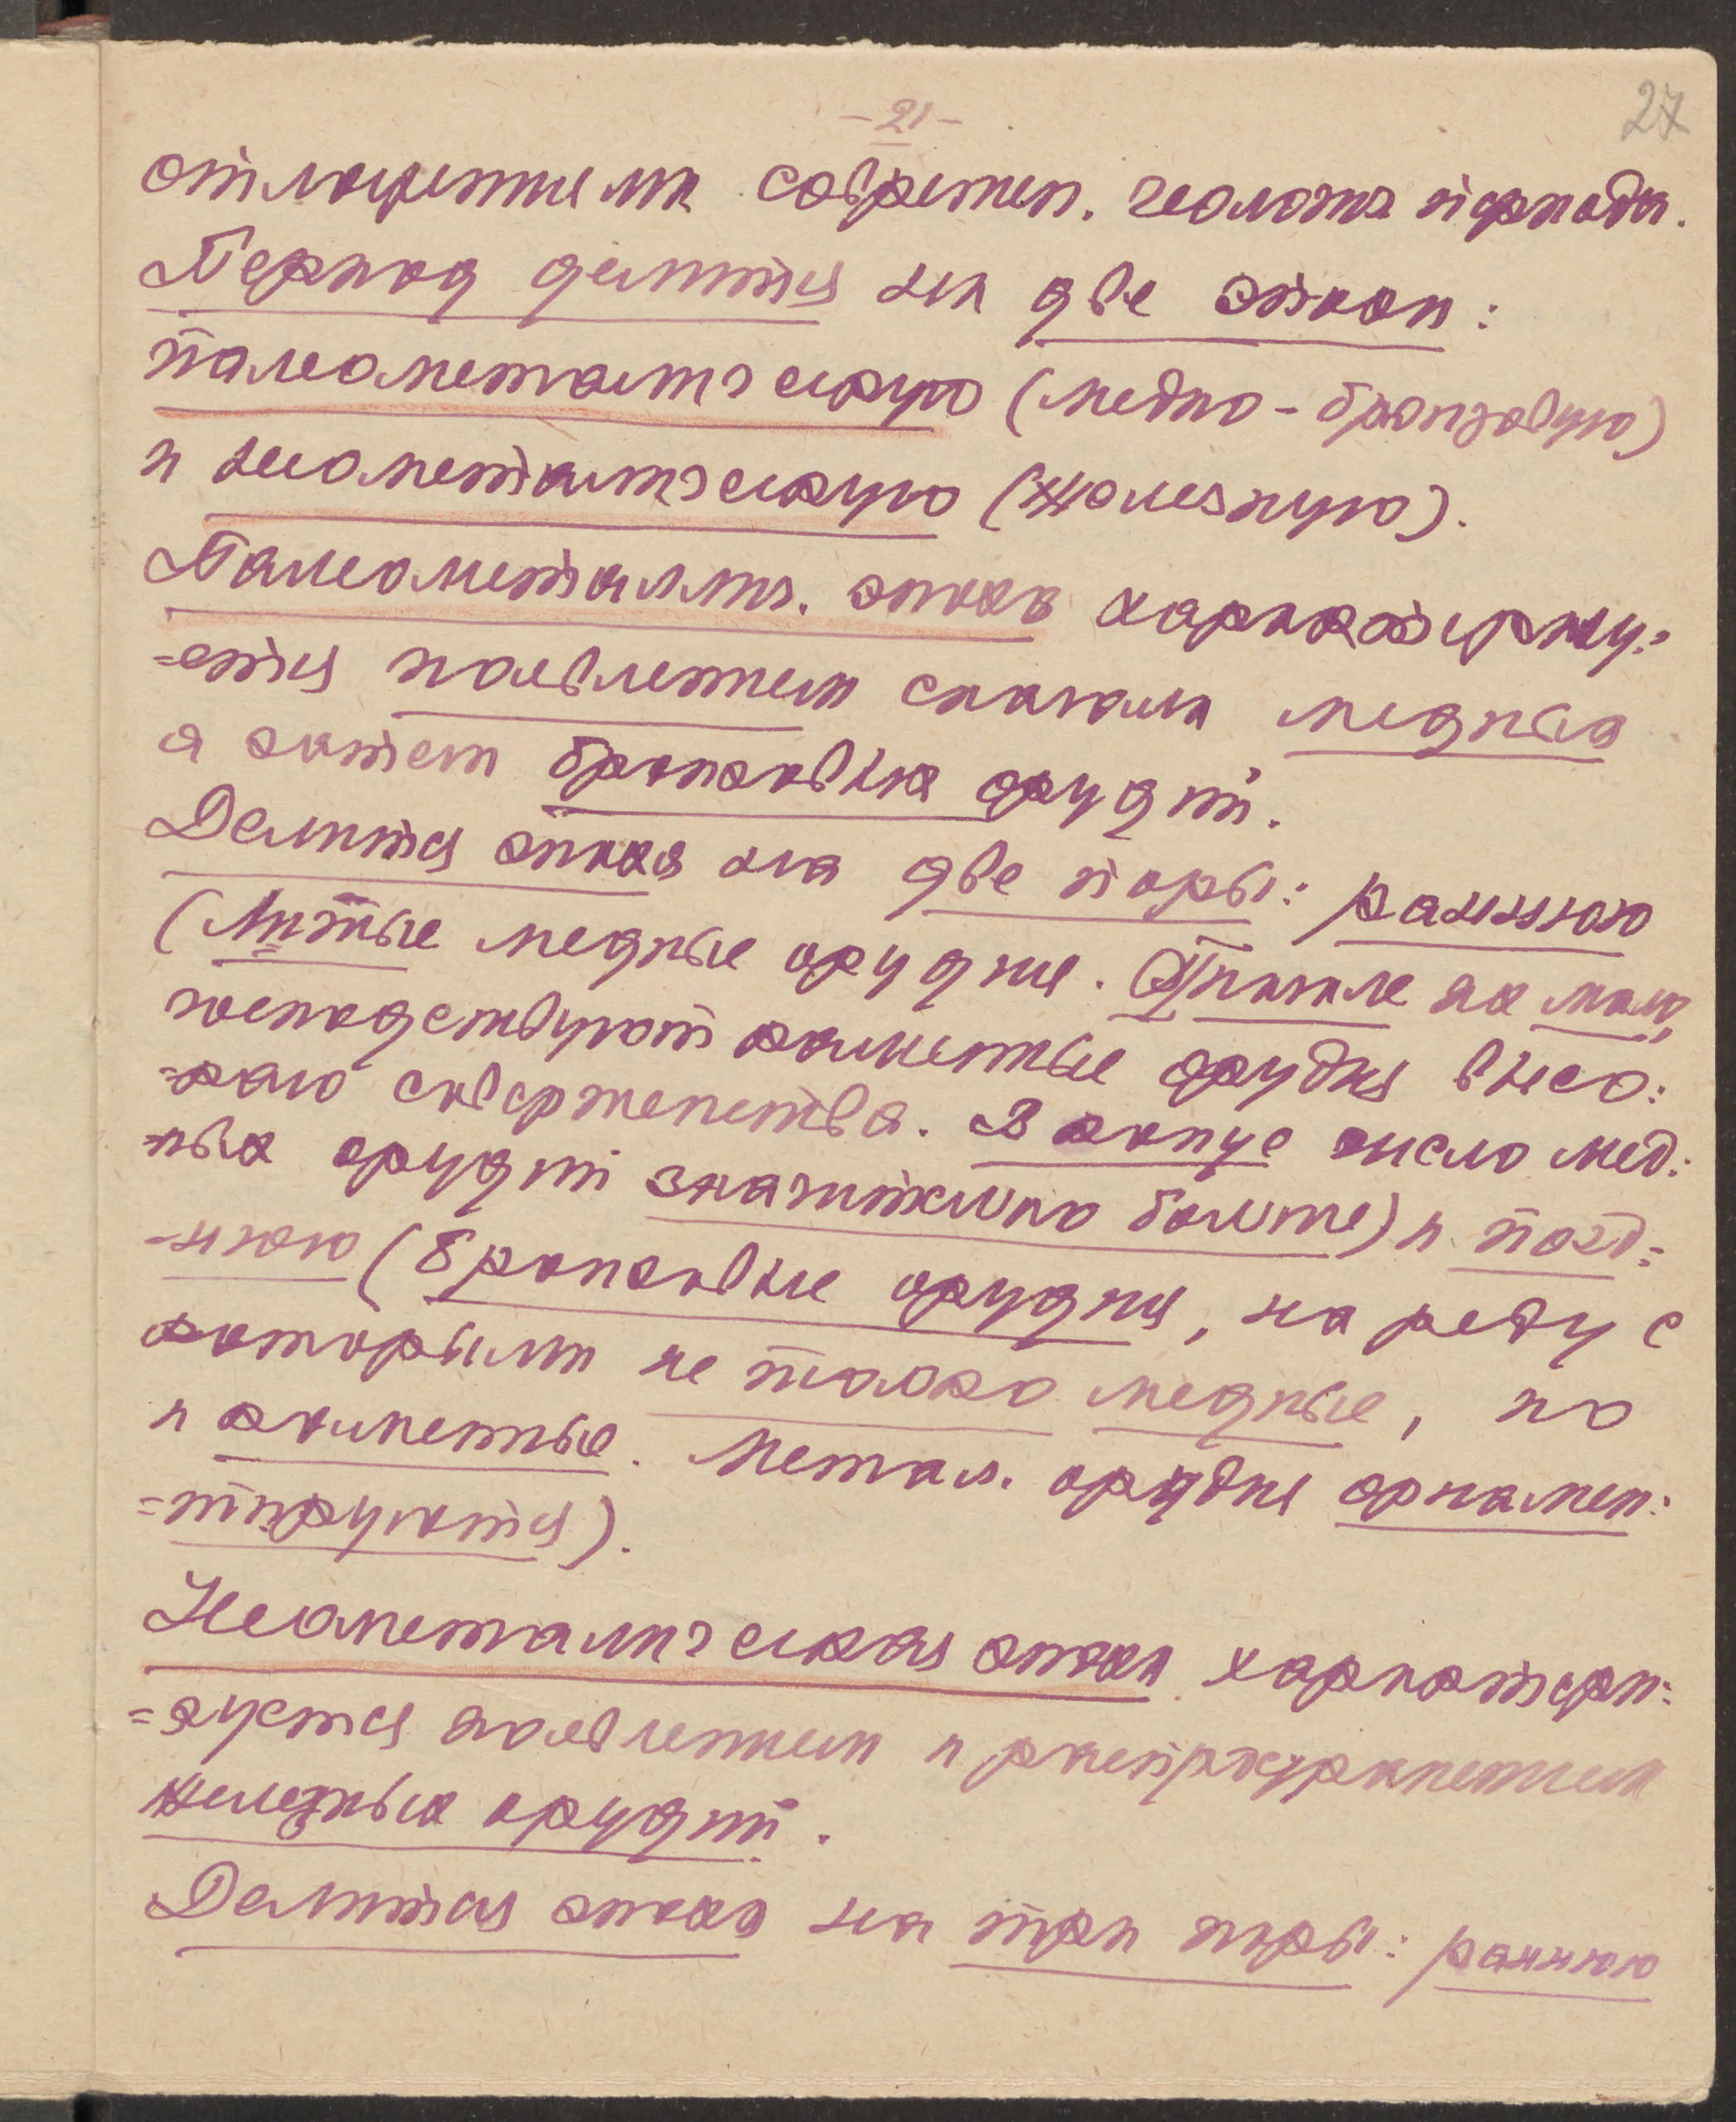 -21-
27
отложениями современ. геологич периода.
Период делится на две эпохи:
палеометаллическую (медно-бронзовую)
и неометаллическую (железную).
Палеометаллич. эпоха характеризу:
=ется появлением сначала медных
а затем бронзовых орудий.
Делится эпоха на две поры: раннюю
(Литые медные орудия. Вначале их мало,
господствуют каменные орудия высо:
=каго совершенства. В конце число мед:
=ных орудий значительно больше) и позд:
-нюю (Бронзовые орудия, на ряду с
которыми не только медные, но
и каменные. Метал. орудия орнамен:
=тируются).
Неометаллическая эпоха характери:
=зуется появлением и распространением
железных орудий.
Делится эпоха на три поры: раннюю